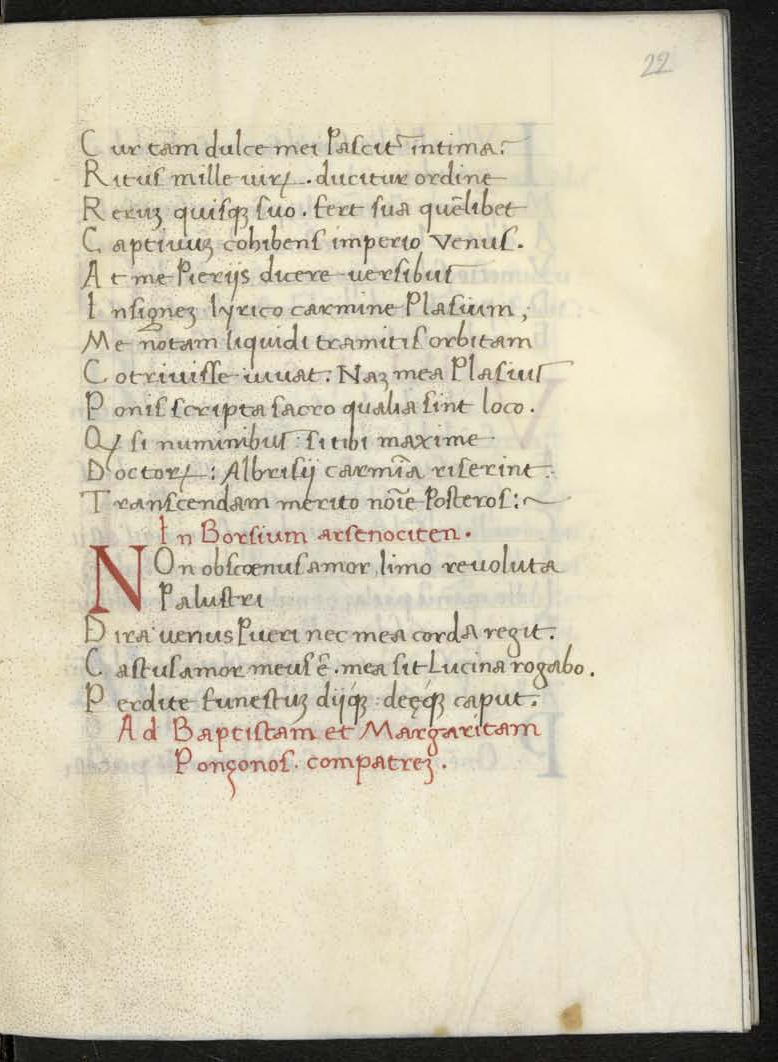 22
Cur tam dulce mei Pascit᷑ intima:
Ritus mille uirꝝ. ducitur ordine
Reruꝫ quisqꝫ suo. fert sua quēlibet
Captiuuꝫ cohibens imperio Venus.
At me Pierijs dicere uersibus
Insigneꝫ lyrico carmine Plasium,
Me notam liquidi tramitis orbitam
Cotriuisse iuuat. Naꝫ mea Plasius
Ponis scripta sacro qualia sint loco.
Qꝫ si numinibus si tibi maxime
Doctorꝝ: Albrisij carmīa riserint:
Transcendam merito noīe Posteros:~
In Borsium arsenociten.
NOn obscœnus amor limo reuoluta
Palustri
Dira uenus Pueri nec mea corda regit.
Castus amor meus ē. mea sit Lucina rogabo.
Perdite funestuꝫ dijqꝫ deęqꝫ caput.
Ad Baptistam et Margaritam
Ponzonos. compatreꝫ.